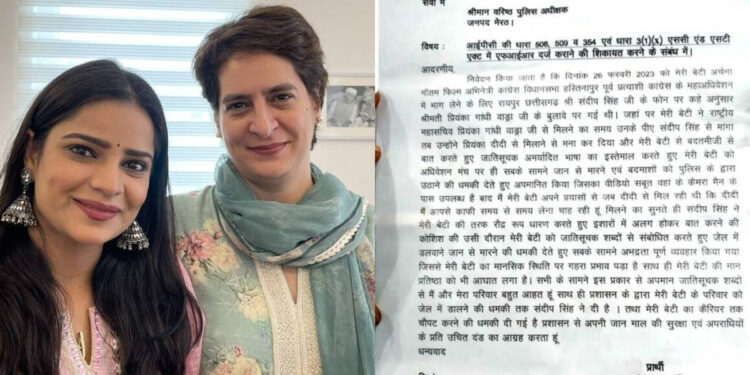 सेवा में
श्रीमान वरिष्ठ पुलिस अधीक्षक
जनपद मेरठ।
विषय: आईपीसी की धारा 506, 509 व 354 एवं धारा 3(1)(x) एससी एंड एसटी
एक्ट में एफआईआर दर्ज कराने की शिकायत करने के संबंध में।
आदरणीय,
निवेदन किया जाता है कि दिनांक 26 फरवरी 2023 को मेरी बेटी अर्चना
गौतम फिल्म अभिनेत्री कांग्रेस विधानसभा हस्तिनापुर पूर्व प्रत्याशी कांग्रेस के महाअधिवेशन
में भाग लेने के लिए रायपुर छत्तीसगढ़ श्री संदीप सिंह जी के फोन पर कहे अनुसार
श्रीमती प्रियंका गांधी वाड्रा जी के बुलावे पर गई थी। जहां पर मेरी बेटी ने राष्ट्रीय
महासचिव प्रियंका गांधी वाड्रा जी से मिलने का समय उनके पीए संदीप सिंह से मांगा
तब उन्होंने प्रियंका दीदी से मिलाने से मना कर दिया और मेरी बेटी से बदतमीजी से
बात करते हुए जातिसूचक अमर्यादित भाषा का इस्तेमाल करते हुए मेरी बेटी को
अधिवेशन मंच पर ही सबके सामने जान से मारने एवं बदमाशों को पुलिस के द्वारा
उठाने की धमकी देते हुए अपमानित किया जिसका वीडियो सबूत वहां के कैमरा मैन के
पास उपलब्ध है बाद मैं मेरी बेटी अपने प्रयासों से जब दीदी से मिल रही थी कि दीदी
मैं आपसे काफी समय से समय लेना चाह रही हूं मिलने का सुनते ही संदीप सिंह ने
मेरी बेटी की तरफ रौद्र रूप धारण करते हुए इशारों में अलग होकर बात करने की
कोशिश की उसी दौरान मेरी बेटी को जातिसूचक शब्दों से संबोधित करते हुए जेल में
डलवाने जान से मारने की धमकी देते हुए सबके सामने अभद्रता पूर्ण व्यवहार किया गया
जिससे मेरी बेटी का मानसिक स्थिति पर गहरा प्रभाव पड़ा है साथ ही मेरी बेटी की मान
प्रतिष्ठा को भी आघात लगा है। सभी के सामने इस प्रकार से अपमान जातिसूचक शब्दों
से मैं और मेरा परिवार बहुत आहत हूं साथ ही प्रशासन के द्वारा मेरी बेटी के परिवार को
जेल में डालने की धमकी तक संदीप सिंह ने दी है । तथा मेरी बेटी का कैरियर तक
चौपट करने की धमकी दी गई है प्रशासन से अपनी जान माल की सुरक्षा एवं अपराधियों
के प्रति उचित दंड का आग्रह करता हूं
धन्यवाद
प्रार्थी